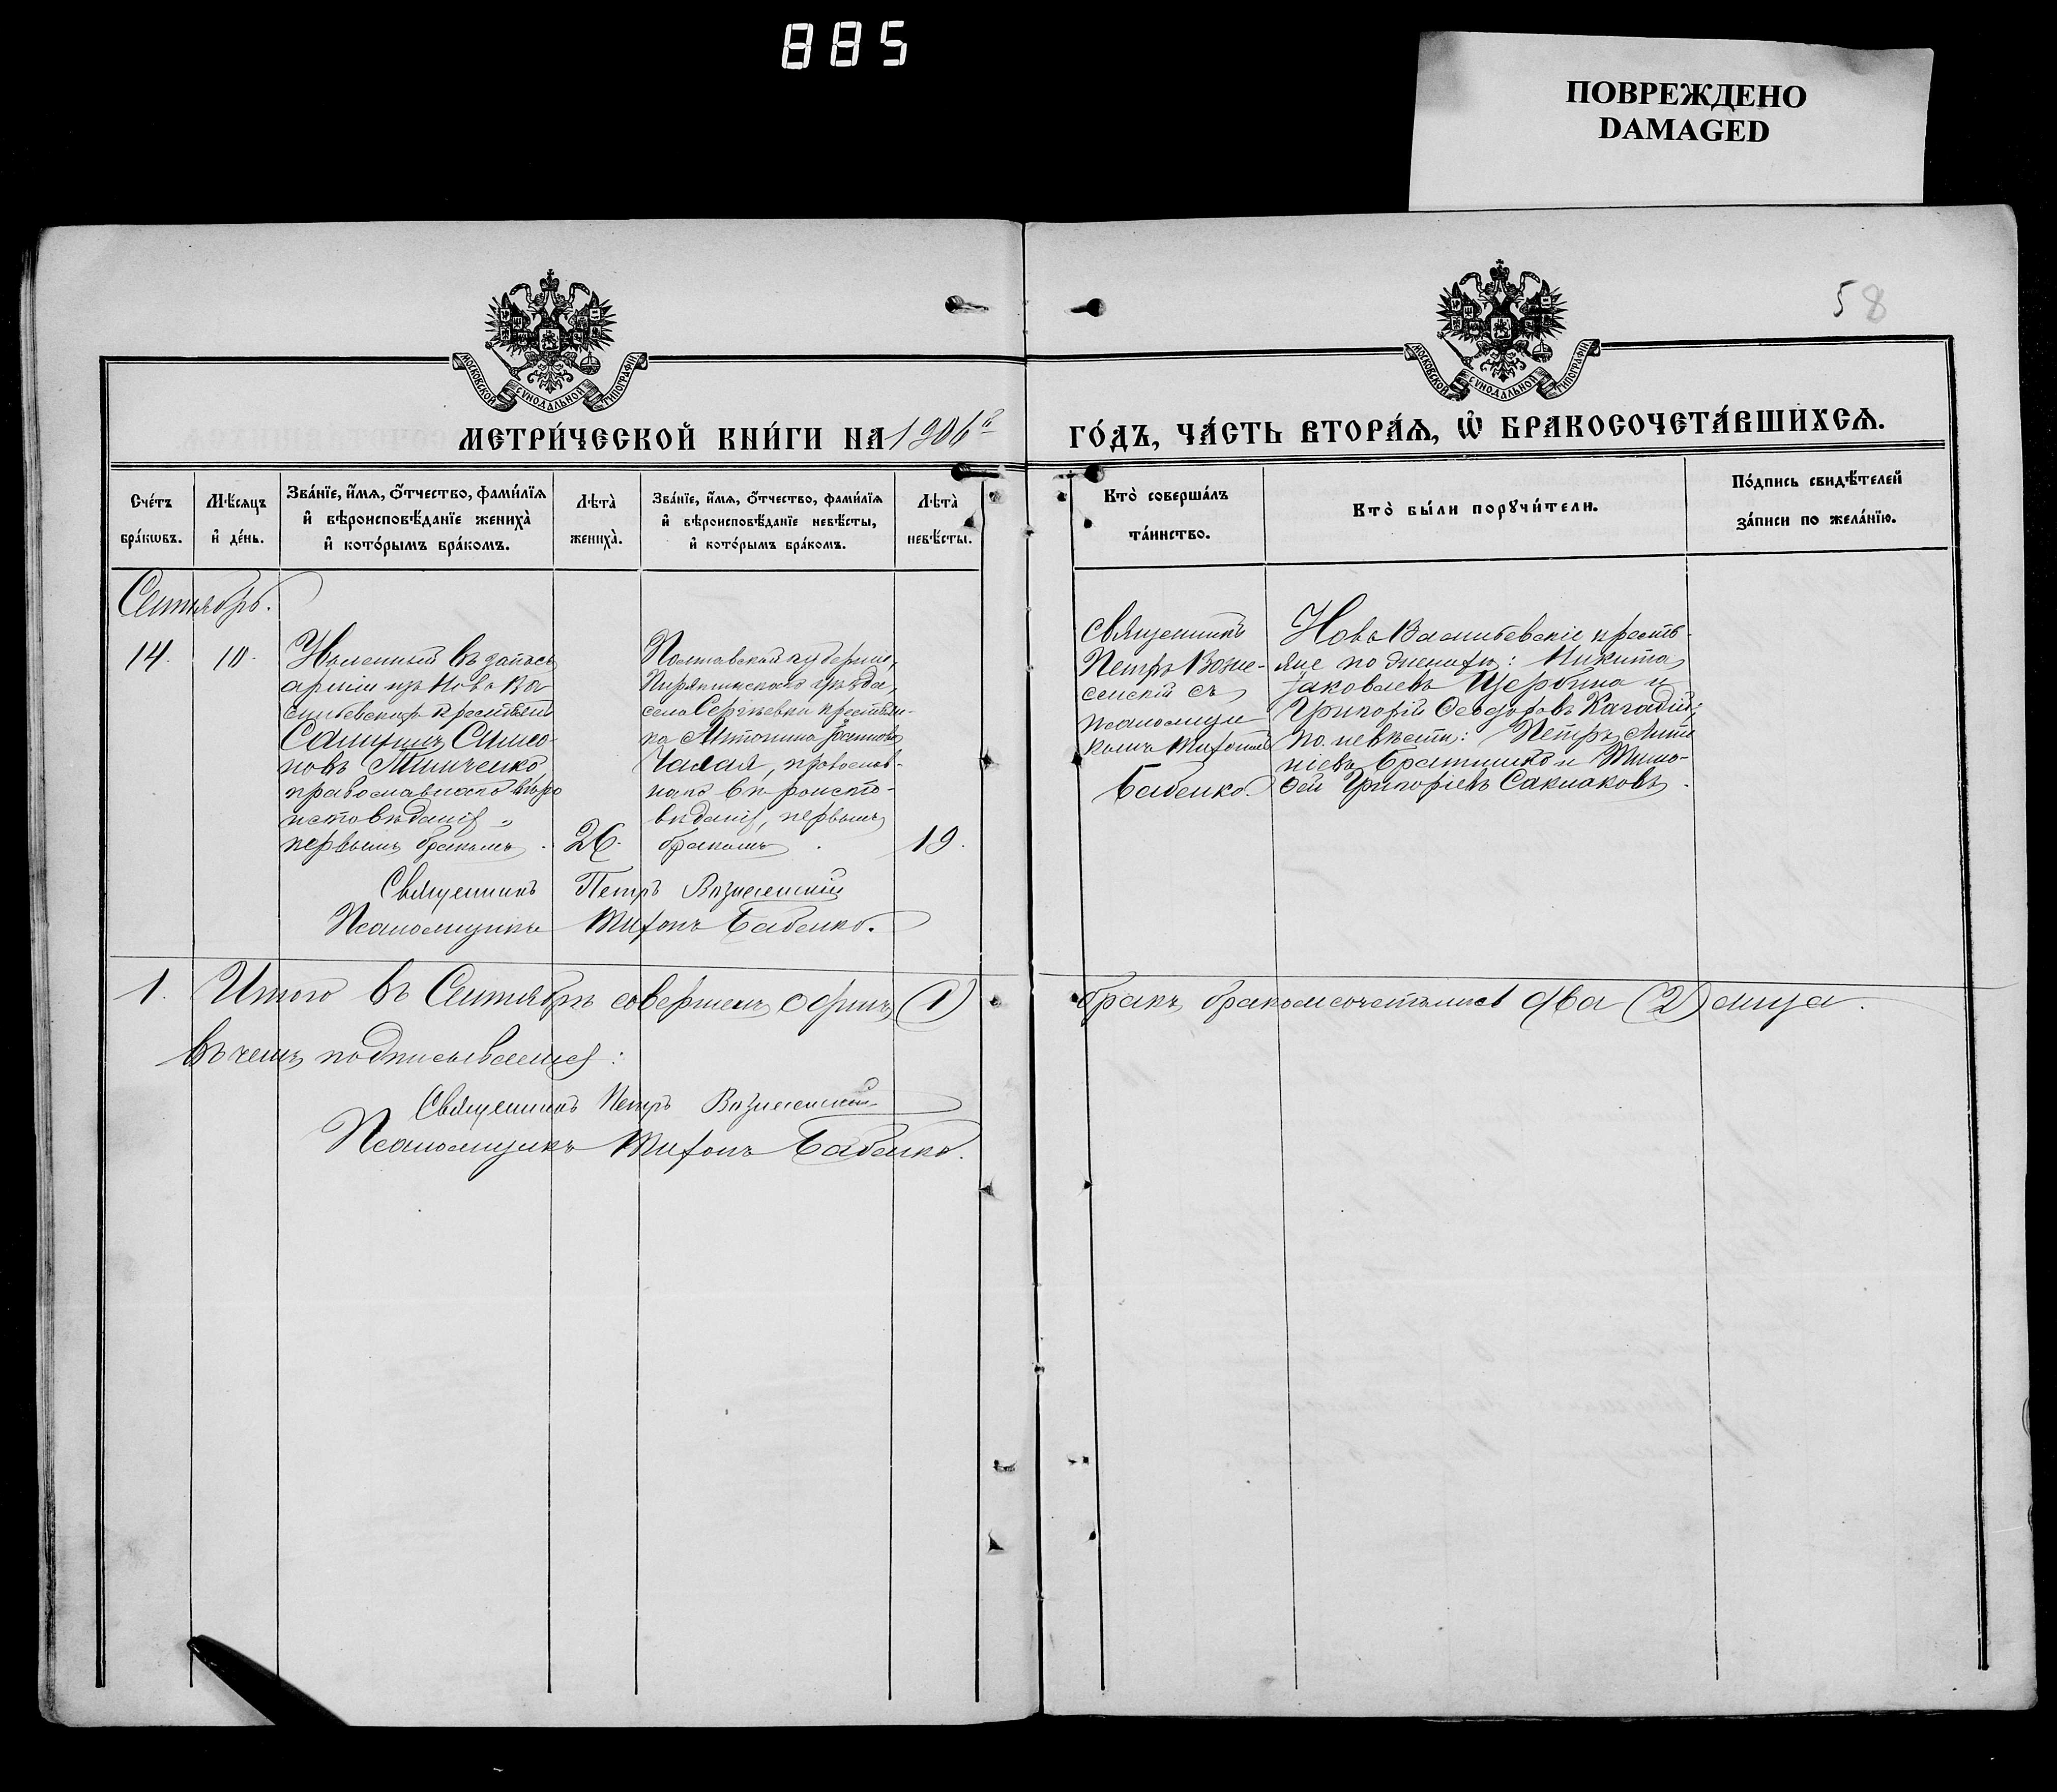 885
ПОВРЕЖДЕНО
DAMAGED
58
МОСКОВСКОЙ СѴНОДАЛЬНОЙ ТИПОГРАФІИ
МОСКОВСКОЙ СѴНОДАЛЬНОЙ ТИПОГРАФІИ
МЕТРИ́ЧЕСКОЙ КНИ́ГИ НА 1906й
ГО́ДЪ, ЧА́СТЬ ВТОРА́Ѧ, Ѡ҆ БРАКОСОЧЕТА́ВШИХСѦ.
Сче́тъ
бра́кѡвъ.
Мѣ́сяцъ
и҆ де́нь.
Зва́нїе, и҆́мѧ, ѻ҆́тчество, фами́лїѧ
и҆ вѣроисповѣ́данїе жениха̀
и҆ кото́рымъ бра́комъ.
Лѣта̀
жениха̀.
Зва́нїе, и҆́мѧ, ѻ҆́тчество, фами́лїѧ
и҆ вѣроисповѣ́данїе невѣ́сты,
и҆ кото́рымъ бра́комъ.
Лѣта̀
невѣ́сты.
Кто̀ соверша́лъ
та́инство.
Кто̀ бы́ли порꙋчи́тели.
По́дпись свидѣ́телей
за́писи по жела́нїю.
Сентябрь.
14.
10.
Уволенный въ запасъ
арміи изъ Ново Ва
сильевскихъ крестьянъ
Симео-
новъ Тимченко
православнаго вѣро
исповѣданія,
первымъ бракомъ.
26.
Полтавской губерніи,
Пирятинскаго уѣзда,
села Сергѣевки крестьян-
ка Антонина Іоаннова
Чалая, православ-
наго вѣроиспо-
вѣданія, первымъ
бракомъ.
19.
Священникъ
Петръ Возне-
сенскій съ
псаломщи
комъ Тихономъ
Бабенко.
Ново Васильевскіе кресть-
яне по женихѣ: Никита
Іаковлевъ Щербина и
Григорій Ѳеодоровъ
по невѣстѣ: Петръ
и Тимо-
ѳей Григоріевъ
Священникъ Петръ Вознесенскій
Псаломщикъ Тихонъ Бабенко.
1. Итого въ Сентябрѣ совершенъ одинъ (1) бракъ, бракомсочетались два (2) лица.
въ чемъ подписываемся:
Священникъ Петръ Вознесенскій
Псаломщикъ Тихонъ Бабенко.